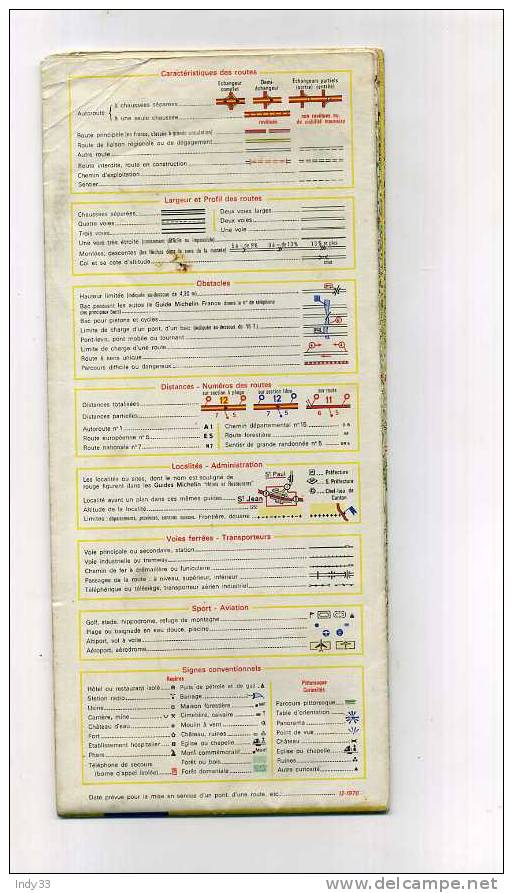 Caractéristiques des routes
Echangeur complet
Demi-échangeur
Echangeurs partiels (sortie) (entrée)
Autoroute
à chaussées séparées
à une seule chaussée
revêtues
non revêtues ou de viabilité mauvaise
Route principale (en France, classée à grande circulation)
Route de liaison régionale ou de dégagement
Autre route
Route interdite, route en construction
Chemin d'exploitation
Sentier
Largeur et Profil des routes
Chaussées séparées
Quatre voies
Trois voies
Deux voies larges
Deux voies
Une voie
Une voie très étroite (croisement difficile ou impossible)
Montées, descentes (les flèches dans le sens de la montée)
Col et sa cote d'altitude
Obstacles
Hauteur limitée (indiquée au-dessous de 4,30 m)
Bac passant les autos (le Guide Michelin France donne le n° de téléphone
des principaux bacs)
Bac pour piétons et cycles
Limite de charge d'un pont, d'un bac (indiquée au-dessous de 16 T)
Pont-levis, pont mobile ou tournant
Limite de charge d'une route
Route à sens unique
Parcours difficile ou dangereux
Distances - Numéros des routes
sur section à péage
sur section libre
sur route
12 12 11
7 5 7 5 6 5
Distances totalisées
Distances partielles
Autoroute n° 1 A1
Route européenne n° 5 E5
Route nationale n° 7 N7
Chemin départemental n° 16
Route forestière
Sentier de grande randonnée n° 6
Localités - Administration
Les localités ou sites, dont le nom est souligné de
rouge figurent dans les Guides Michelin "Hôtels et Restaurants"
St Paul
Localité ayant un plan dans ces mêmes guides St Jean
Altitude de la localité
Limites: département, province, canton suisse. Frontière, douane
P Préfecture
S. Préfecture
Chef-lieu de Canton
Voies ferrées - Transporteurs
Voie principale ou secondaire, station
Voie industrielle ou tramway
Chemin de fer à crémaillère ou funiculaire
Passages de la route : à niveau, supérieur, inférieur
Téléphérique ou télésiège, transporteur aérien industriel
Sport - Aviation
Golf, stade, hippodrome, refuge de montagne
Plage ou baignade en eau douce, piscine
Altiport, vol à voile
Aéroport, aérodrome
Signes conventionnels
Repères
Hôtel ou restaurant isolé
Station radio
Usine
Carrière, mine
Château d'eau
Fort
Etablissement hospitalier
Phare
Téléphone de secours
(borne d'appel isolée)
Puits de pétrole et de gaz
Barrage
Maison forestière
Cimetière, calvaire
Moulin à vent
Château, ruines
Eglise ou chapelle
Mont commémoratif
Forêt ou bois
Forêt domaniale
Pittoresque
Curiosités
Parcours pittoresque
Table d'orientation
Panorama
Point de vue
Château
Eglise ou chapelle
Ruines
Autre curiosité
Date prévue pour la mise en service d'un pont, d'une route, etc. 12-1976
Indy33
www.delcampe.net